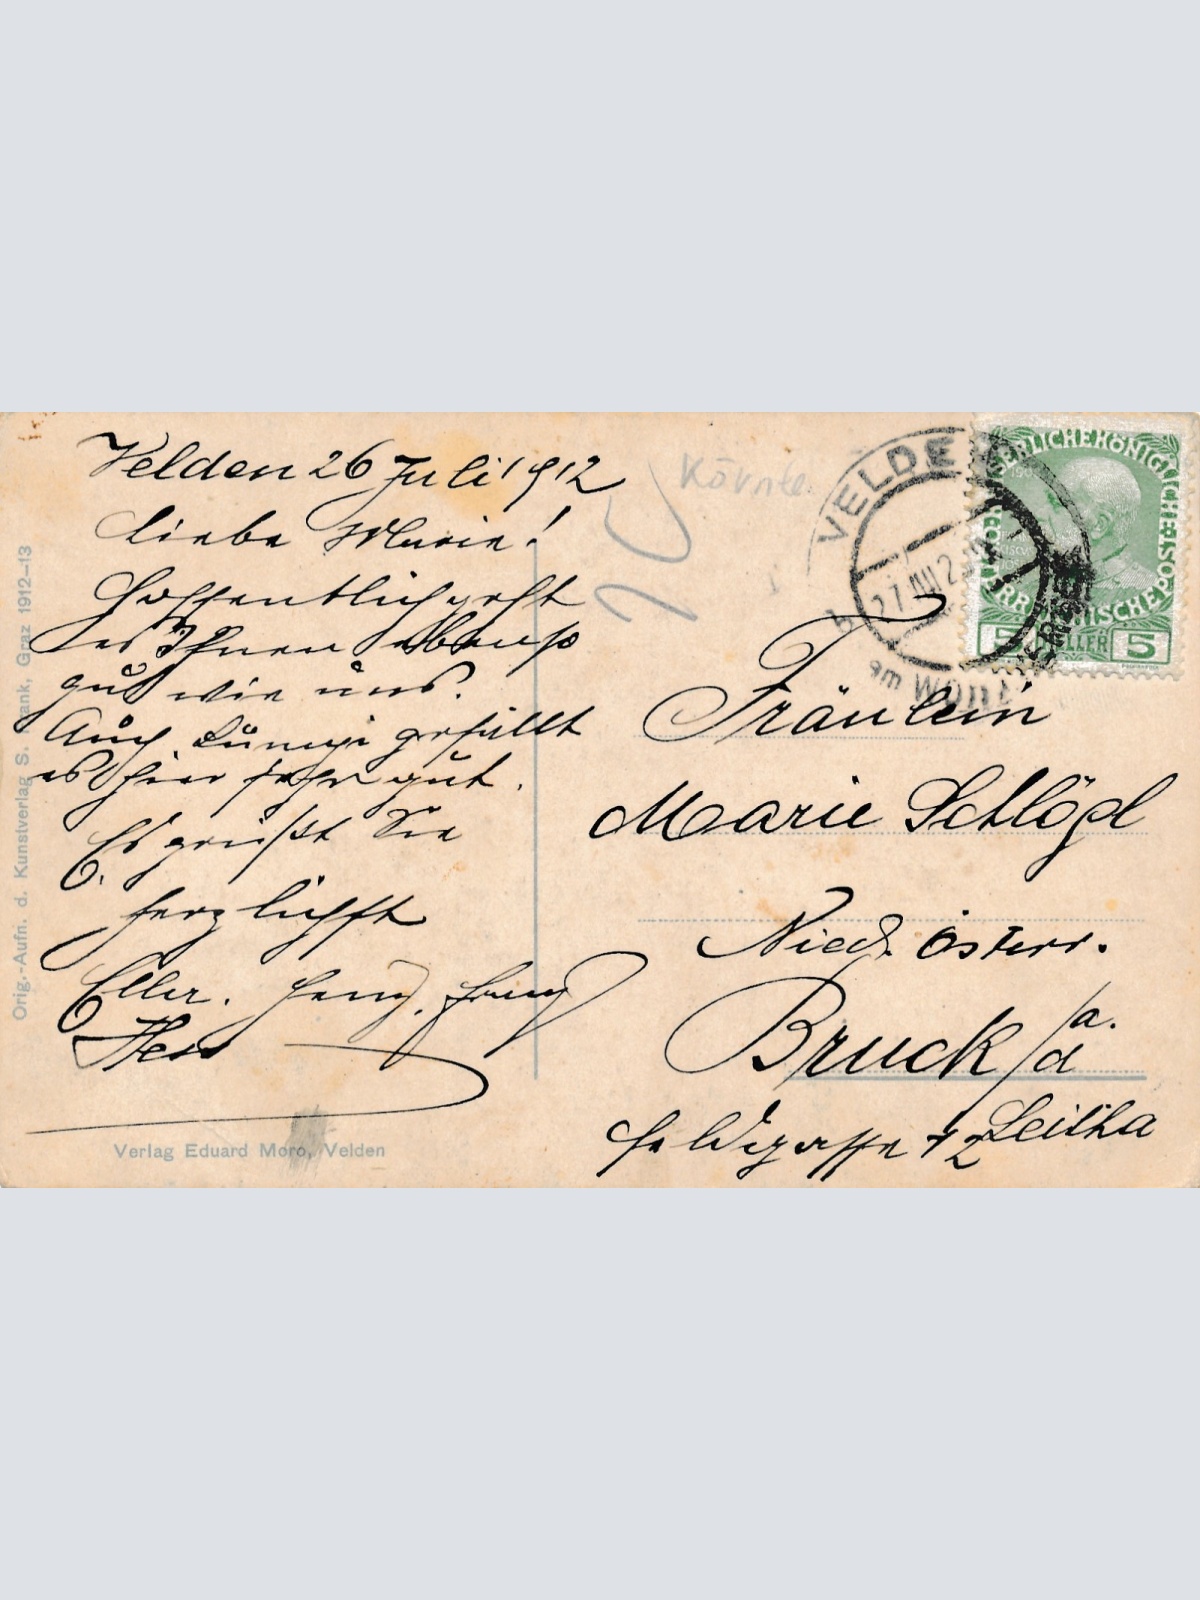 Velden 26 Juli 1912
Liebe Marie!
Hoffentlich geht
es Ihnen ebenso
gut wie uns.
Auch gefällt
es hier sehr gut.
Es grüßt Sie
herzlichst
Hess
Kärnten
VELDEN
am WÖRTHERSEE
27 VII 12
KAISERLICHE KÖNIGLICHE ÖSTERREICHISCHE POST
5 HELLER 5
Fräulein
Marie Schlögl
Nied. österr.
Bruck a./d
Leitha
Feldgasse 12
Verlag Eduard Moro, Velden
Orig.-Aufn. d. Kunstverlag S. Frank, Graz 1912-13